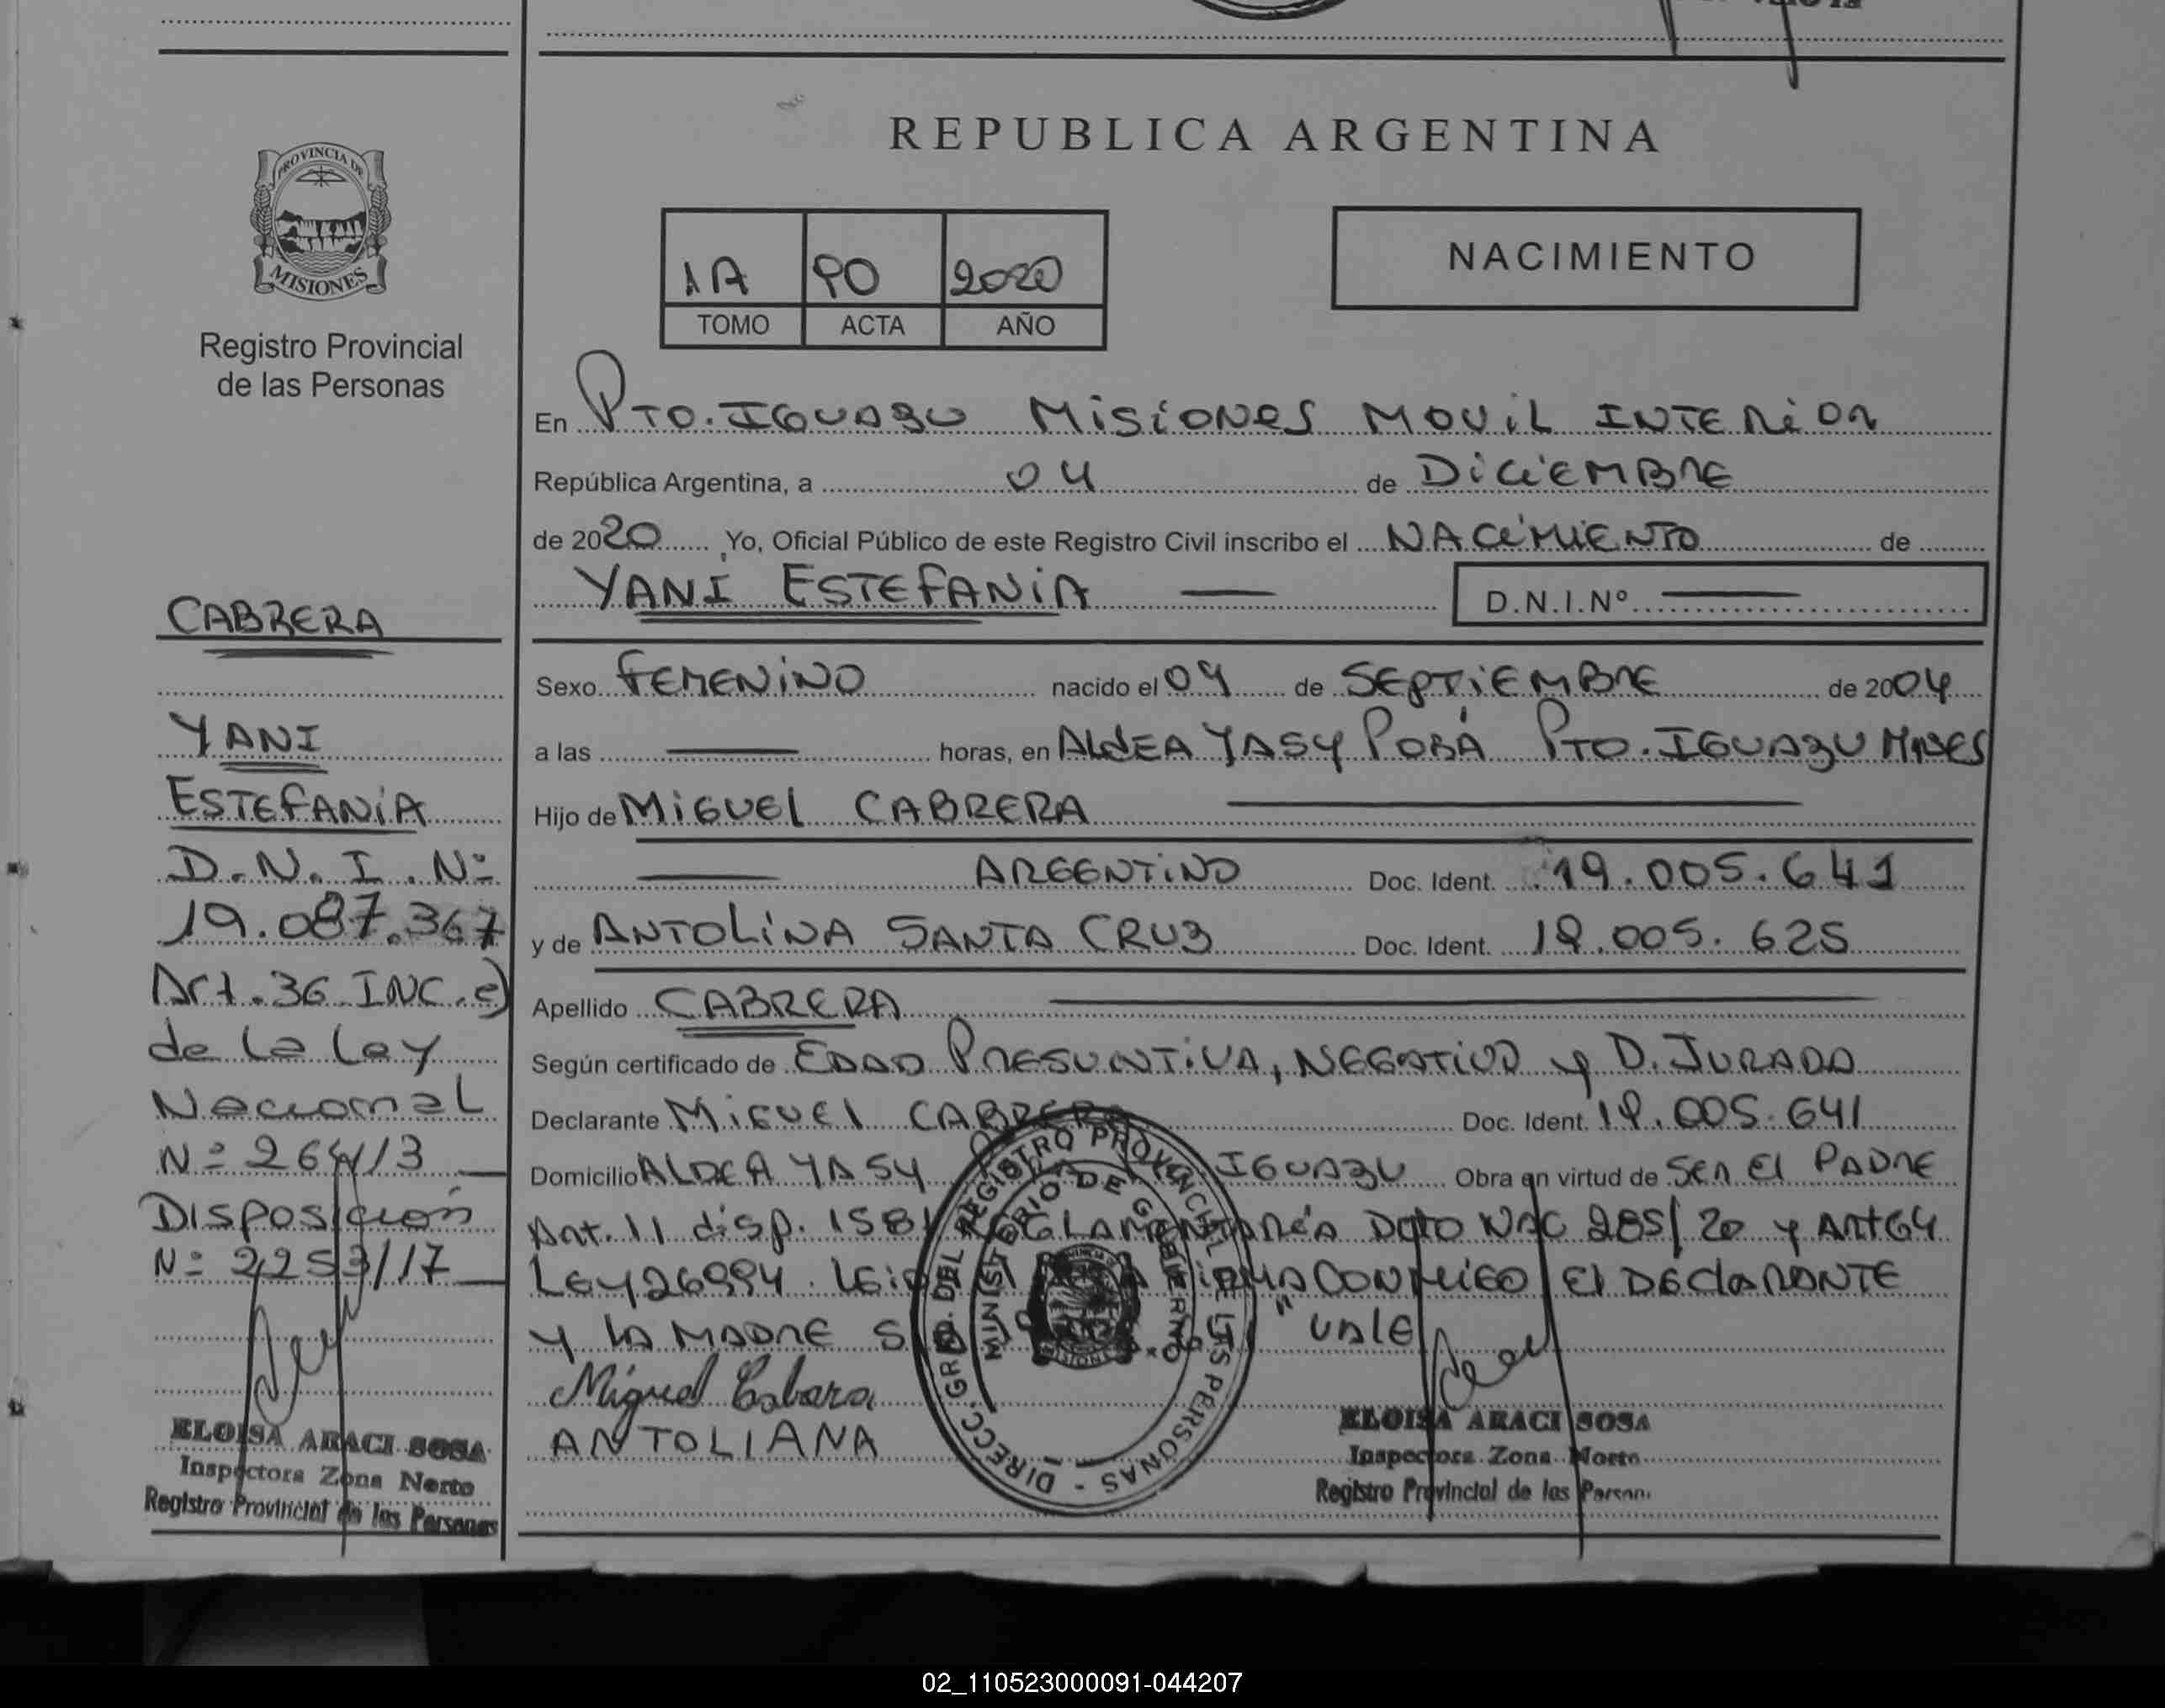 REPUBLICA ARGENTINA
PROVINCIA DE
MISIONES
Registro Provincial
de las Personas
1A 90 2020
TOMO ACTA AÑO
NACIMIENTO
En PTO. IGUAZU MISIONES MOVIL INTERIOR
República Argentina, a 04 de DICIEMBRE
de 2020 Yo, Oficial Público de este Registro Civil inscribo el NACIMIENTO de
YANI ESTEFANIA D.N.I.Nº
Sexo FEMENINO nacido el 09 de SEPTIEMBRE de 2004
a las horas, en ALDEA YASY PORÁ PTO. IGUAZU MNES
Hijo de MIGUEL CABRERA
ARGENTINO Doc. Ident. 19.005.641
y de ANTOLINA SANTA CRUZ Doc. Ident. 19.005.625
Apellido CABRERA
Según certificado de EDAD PRESUNTIVA, NEGATIVO y D. JURADA
Declarante MIGUEL CABRERA Doc. Ident. 19.005.641
Domicilio ALDEA YASY IGUAZU Obra en virtud de SER EL PADRE
Art. 11 disp. 158 DCTO NAC 285/20 y ART 64
LEY 26994. CONMIGO EL DECLARANTE
Y LA MADRE "VALE
Miguel Cabrera
ANTOLIANA
DIRECC. GRAL. DEL REGISTRO PROVINCIAL DE LAS PERSONAS
MINISTERIO DE GOBIERNO
ELOISA ARACI SOSA
Inspectora Zona Norte
Registro Provincial de las Person
CABRERA
YANI
ESTEFANIA
D.N.I. Nº
19.087.367
Art. 36 INC. e)
de la Ley
Nacional
Nº 26413
Disposición
Nº 2253/17
ELOISA ARACI SOSA
Inspectora Zona Norte
Registro Provincial de las Personas
02_110523000091-044207